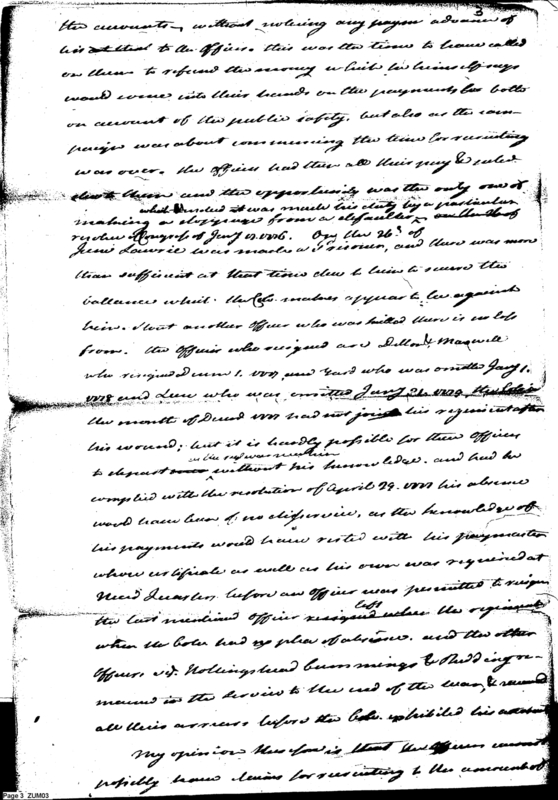 3
the accounts, without noticing any payment advance of
his to the officers this was the time to have called
on them to refund the money which he himself says
would come into their hands on the payments both
on account of the public safety, but also as the cam
paign was about commencing the time for recruiting
was over. the officers had then all their pay &
due to them and the opportunity was the only one of
which indeed it was made his duty by a particular
making a stoppage from a defaulter
resolve of Congress of Jany 1776. On the 26th of
June Lawrie was made a Prisoner, and there was more
than sufficient at that time due to him to secure the
ballance which the Colo. makes appear to be against
him. About another officer who was killed there is no loss
from. the officers who resigned are Dillon & Maxwell
who resigned 1. 1777, and Yard who was omitted Jany 1.
1778 and Lieu who was omitted Jany 21. 1779, the Colo. in
the month of Decemr 1777 had not joined his regiment after
his wound; but it is hardly possible for these officers
to depart without his knowledge. and had he
complied with the resolution of April 29. 1777 his absence
would have been of no disservice, as the knowledge of
his payments would have rested with his paymaster
whose certificate as well as his own was required at
Head Quarters before an officer was permitted to resign
left
the last mentioned officer resigned when the regiment
when the Colo. had no plea of absence. and the other
officers viz. Hollingshead Cummings & Redding re-
mained in the service to the end of the war, & received
all their arrears before the Colo. exhibited his
My opinion therefore is that the officers cannot
possibly have claims for recruiting to the amount of
Page 3 ZUM03